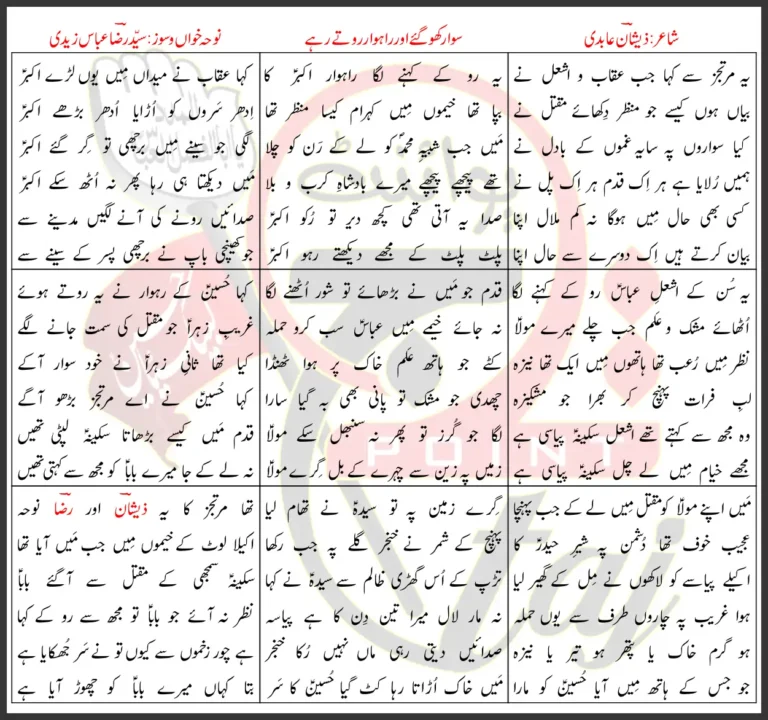 شاعر: ذیشان عابدی
سوار کھو گئے اور راہوار روتے رہے
نوحہ خواں و سوز: سیّد رضا عباس زیدی
یہ مرتجز سے کہا جب عقاب و اشعل نے
بیاں ہوں کیسے جو منظر دِکھائے مقتل نے
کیا سواروں پہ سایہ غموں کے بادل نے
ہمیں رُلایا ہے ہر اِک قدم ہر اِک پل نے
کسی بھی حال میں ہوگا نہ کم ملال اپنا
بیان کرتے ہیں اِک دوسرے سے حال اپنا
یہ رو کے کہنے لگا راہوار اکبرؑ کا
بپا تھا خیموں میں کہرام کیسا منظر تھا
مَیں جب شبیہِ محمدؐ کو لے کے رَن کو چلا
تھے پیچھے پیچھے میرے بادشاہِ کرب و بلا
صدا یہ آتی تھی کچھ دیر تو رُکو اکبرؑ
پلٹ پلٹ کے مجھے دیکھتے رہو اکبرؑ
کہا عقاب نے میداں مِیں یوں لڑے اکبرؑ
اِدھر سَروں کو اُڑایا اُدھر بڑھے اکبرؑ
لگی جو سینے میں برچھی تو گِر گئے اکبرؑ
مَیں دیکھتا ہی رہا پھر نہ اُٹھ سکے اکبرؑ
صدائیں رونے کی آنے لگیں مدینے سے
جو کھینچی باپ نے برچھی پسر کے سینے سے
یہ سُن کے اشعلِ عباسؑ رو کے کہنے لگا
اُٹھائے مشک و عَلم جب چلے میرے مولاؑ
نظر مِیں رُعب تھا ہاتھوں مِیں ایک تھا نیزہ
لبِ فرات پہنچ کر بھرا جو مشکیزہ
وہ مجھ سے کہتے تھے اشعل سکینہؑ پیاسی ہے
مجھے خیام مِیں لے چل سکینہؑ پیاسی ہے
قدم جو مَیں نے بڑھائے تو شور اُٹھنے لگا
نہ جائے خیمے مِیں عباسؑ سب کرو حملہ
کٹے جو ہاتھ عَلم خاک پر ہوا ٹھنڈا
چھدی جو مشک تو پانی بھی بہ گیا سارا
لگا جو گُرز تو پھر نہ سنبھل سکے مولاؑ
زمیں پہ زین سے چہرے کے بل گِرے مولاؑ
کہا حُسینؑ کے رہوار نے یہ روتے ہوئے
غریبِ زہراؑ جو مقتل کی سمت جانے لگے
کیا تھا ثانیِ زہراؑ نے خود سوار آکے
کہا حُسینؑ نے اے مرتجز بڑھو آگے
قدم مَیں کیسے بڑھاتا سکینہؑ لپٹی تھیں
نہ لے کے جا میرے باباؑ کو مجھ سے کہتی تھیں
مَیں اپنے مولاؑ کو مقتل مِیں لے کے جب پہنچا
عجیب خوف تھا دُشمن پہ شیرِ حیدرؑ کا
اکیلے پیاسے کو لاکھوں نے مِل کے گھیر لیا
ہوا غریب پہ چاروں طرف سے یوں حملہ
ہو گرم خاک یا پتھر ہو تیر یا نیزہ
جو جس کے ہاتھ مِیں آیا حُسینؑ کو مارا
گِرے زمین پہ تو سیدہؑ نے تھام لیا
پہنچ کے شمر نے خنجر گلے پہ جب رکھا
تڑپ کے اُس گھڑی ظالم سے سیدہؑ نے کہا
نہ مار لال میرا تین دِن کا ہے پیاسہ
صدائیں دیتی رہی ماں نہیں رُکا خنجر
مَیں خاک اُڑاتا رہا کٹ گیا حُسینؑ کا سَر
تھا مرتجز کا یہ ذیشانؔ اور رضاؔ نوحہ
اکیلا لوٹ کے خیموں مِیں جب مَیں آیا تھا
سکینہؑ سمجھی کے مقتل سے آگئے باباؑ
نظر نہ آئے جو باباؑ تو مجھ سے رو کے کہا
ہے چور زخموں سے کیوں تو نے سَر جُھکایا ہے
بتا کہاں میرے باباؑ کو چھوڑ آیا ہے
پوائنٹ
POINT
taj